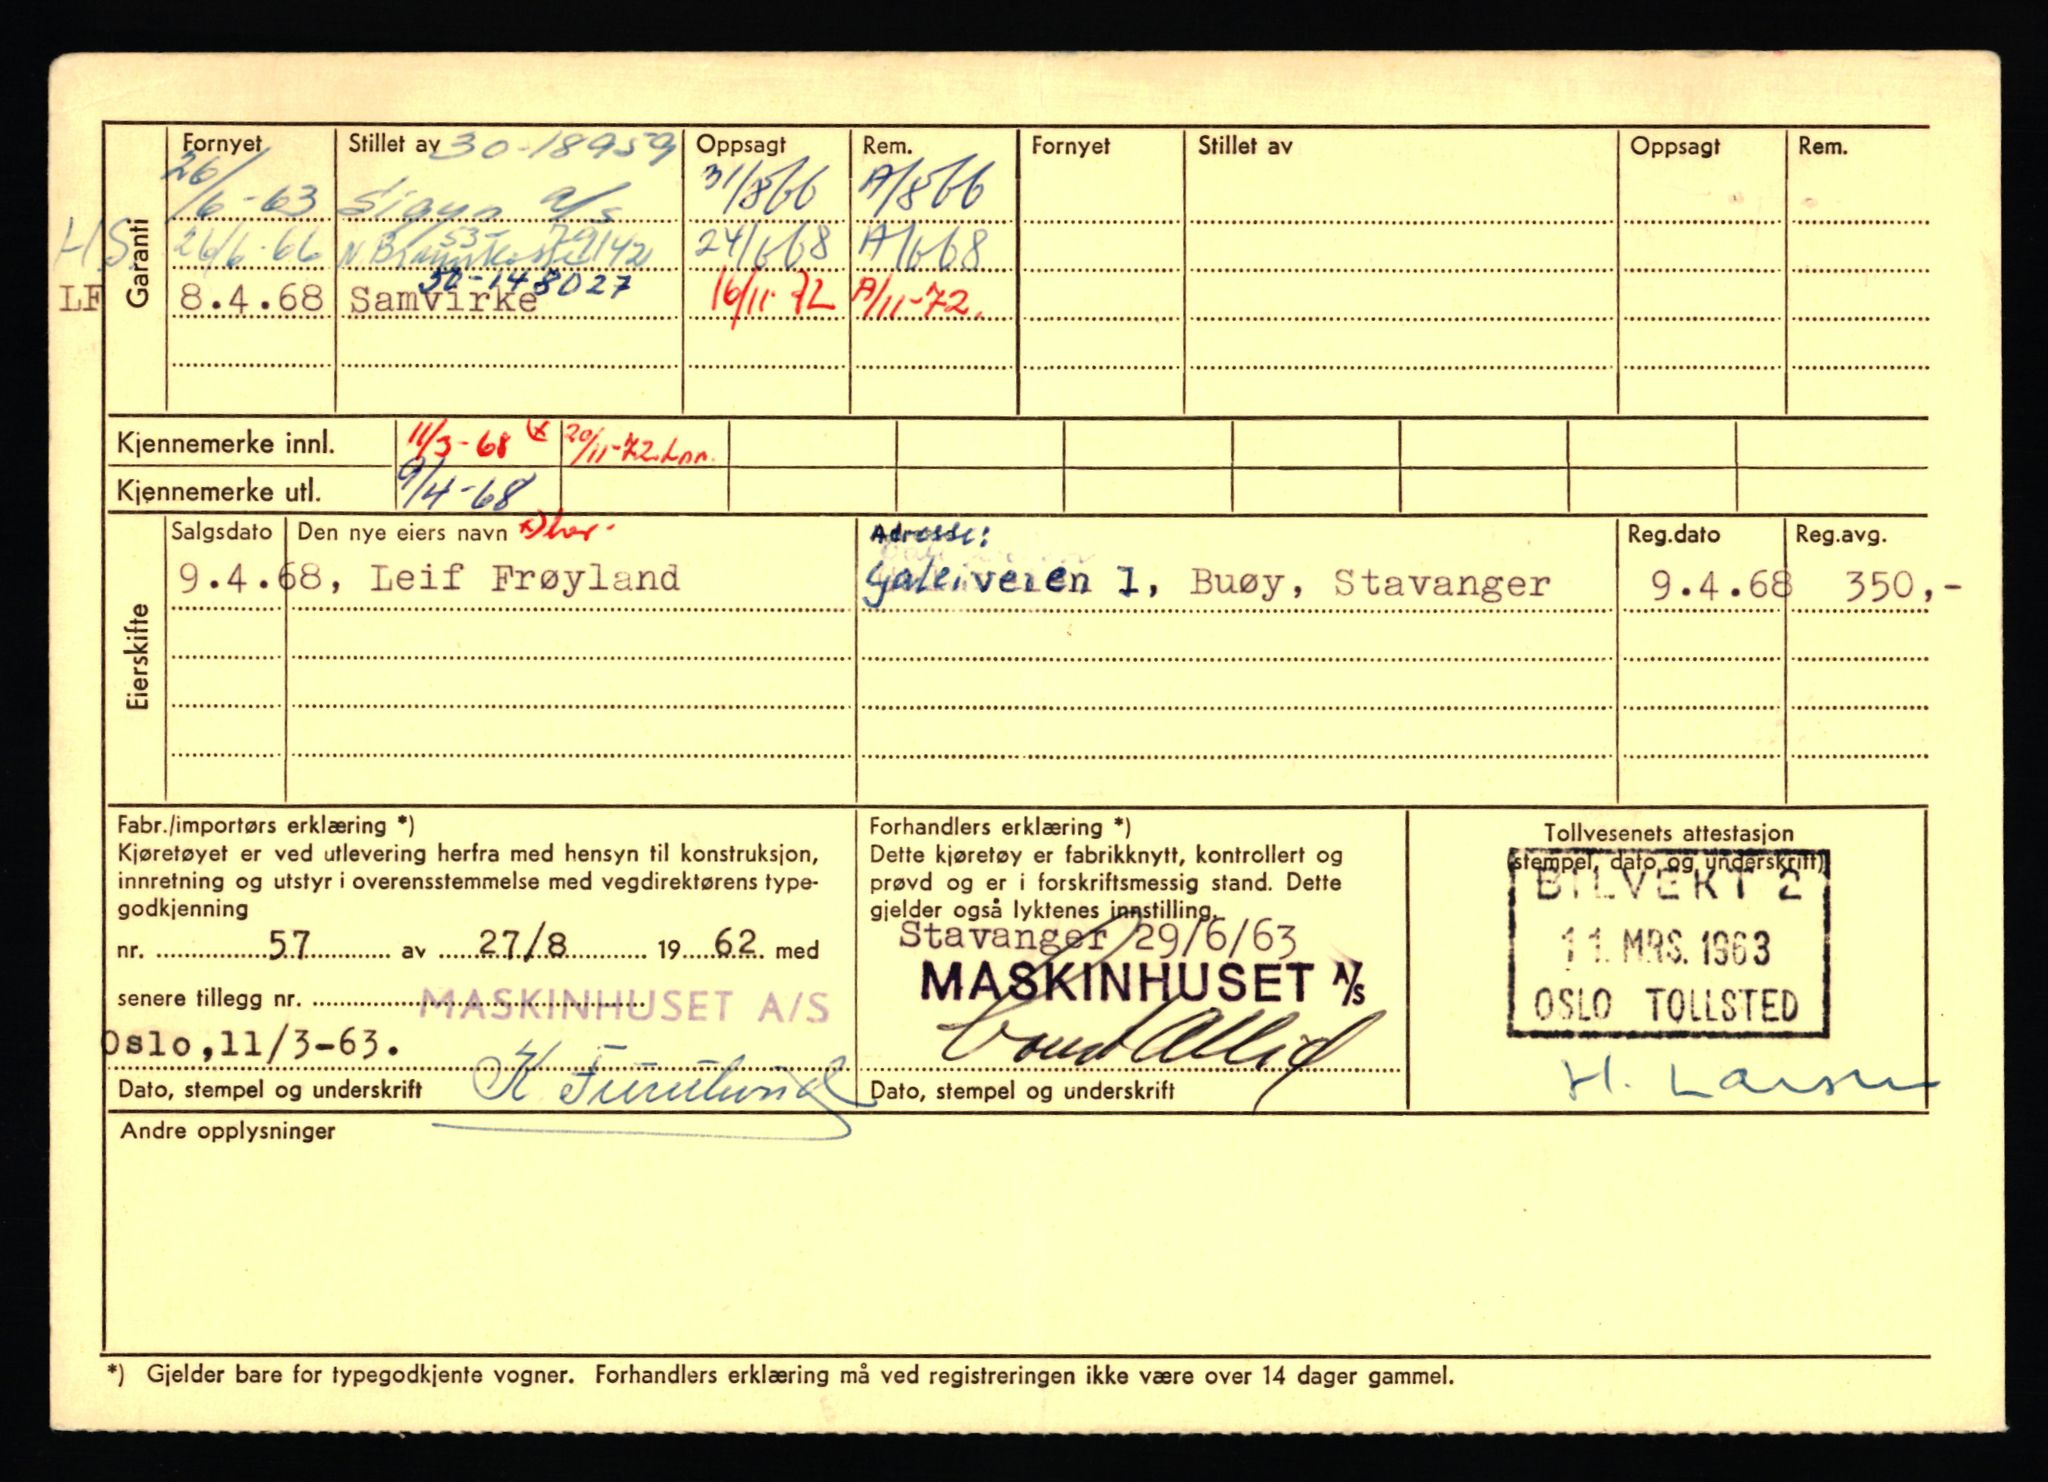 Fornyet Stillet av 30-18959 Oppsagt Rem. Fornyet Stillet av Oppsagt Rem.
26/6-63 Sigyn a/s 31/8 66 A/8 66
Garanti
H.S. 26/6-66 N. Brannkasse 53-79142 24/6 68 A/6 68
30-148027
LF 8.4.68 Samvirke 16/11-72 A/11-72.
Kjennemerke innl. 11/3-68 x 20/11-72. Lnn.
Kjennemerke utl. 9/4-68
Eierskifte
Salgsdato Den nye eiers navn Adresse: Reg.dato Reg.avg.
9.4.68, Leif Frøyland Galeiveien 1, Buøy, Stavanger 9.4.68 350,-
Fabr./importørs erklæring *)
Kjøretøyet er ved utlevering herfra med hensyn til konstruksjon,
innretning og utstyr i overensstemmelse med vegdirektørens type-
godkjenning
nr. 57 av 27/8 1962 med
senere tillegg nr.
MASKINHUSET A/S
Oslo,11/3-63.
K Furulund
Dato, stempel og underskrift
Forhandlers erklæring *)
Dette kjøretøy er fabrikknytt, kontrollert og
prøvd og er i forskriftsmessig stand. Dette
gjelder også lyktenes innstilling.
Stavanger 29/6/63
MASKINHUSET A/S
Dato, stempel og underskrift
Tollvesenets attestasjon
(stempel, dato og underskrift)
BILVEKT 2
11. MRS. 1963
OSLO TOLLSTED
H. Larsen
Andre opplysninger
*) Gjelder bare for typegodkjente vogner. Forhandlers erklæring må ved registreringen ikke være over 14 dager gammel.